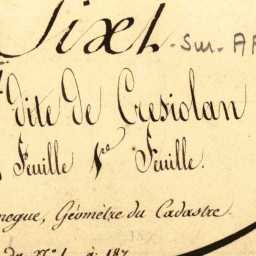 Sixt-Sur-Af
dite de Cresiolan
Feuille 1re Feuille.
negue, Géomètre du Cadastre.